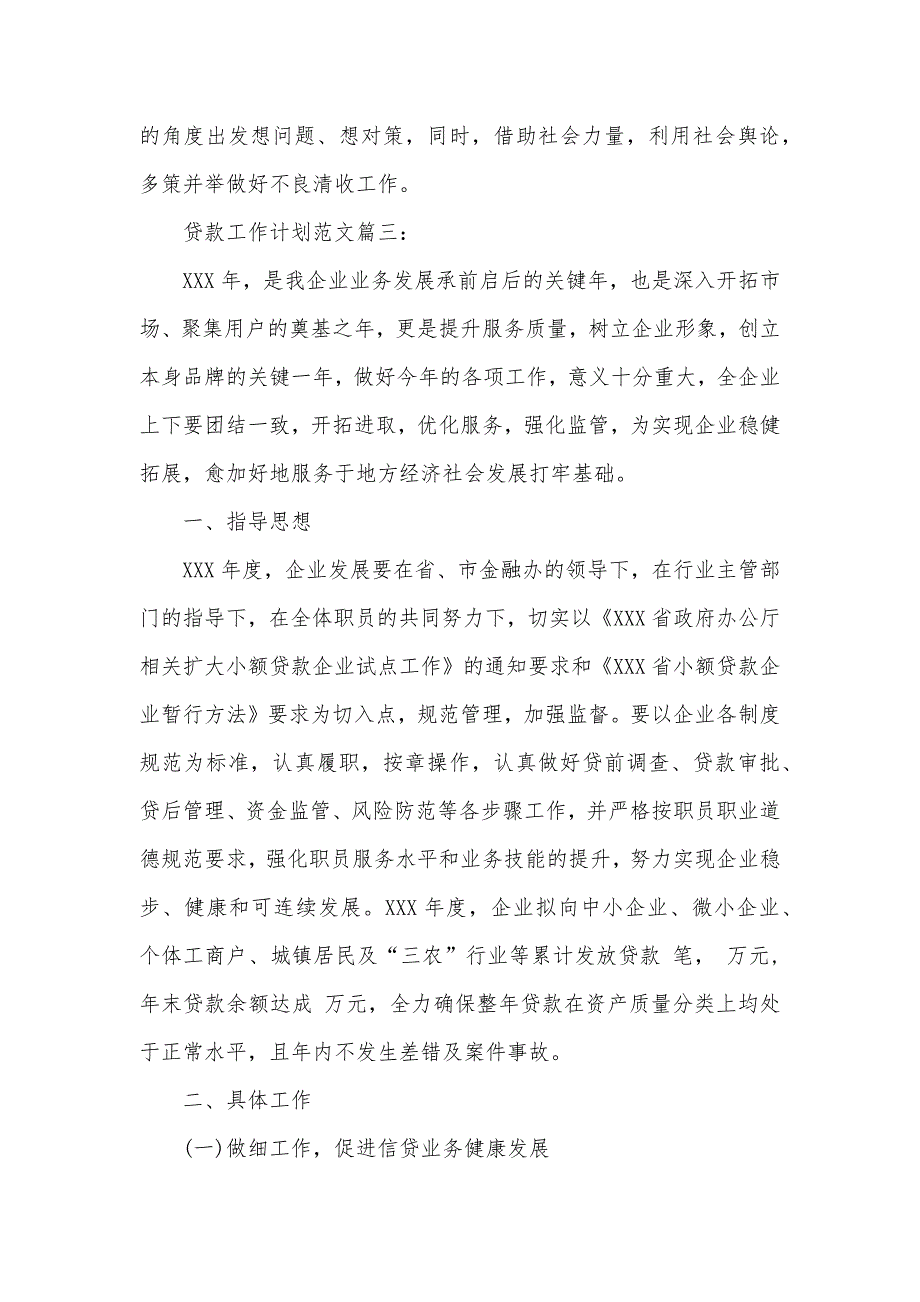 的角度出发想问题、想对策，同时，借助社会力量，利用社会舆论，
多策并举做好不良清收工作。
贷款工作计划范文篇三：
XXX 年，是我企业业务发展承前启后的关键年，也是深入开拓市
场、聚集用户的奠基之年，更是提升服务质量，树立企业形象，创立
本身品牌的关键一年，做好今年的各项工作，意义十分重大，全企业
上下要团结一致，开拓进取，优化服务，强化监管，为实现企业稳健
拓展，愈加好地服务于地方经济社会发展打牢基础。
一、指导思想
XXX 年度，企业发展要在省、市金融办的领导下，在行业主管部
门的指导下，在全体职员的共同努力下，切实以《XXX 省政府办公厅
相关扩大小额贷款企业试点工作》的通知要求和《XXX 省小额贷款企
业暂行方法》要求为切入点，规范管理，加强监督。要以企业各制度
规范为标准，认真履职，按章操作，认真做好贷前调查、贷款审批、
贷后管理、资金监管、风险防范等各步骤工作，并严格按职员职业道
德规范要求，强化职员服务水平和业务技能的提升，努力实现企业稳
步、健康和可连续发展。XXX 年度，企业拟向中小企业、微小企业、
个体工商户、城镇居民及“三农”行业等累计发放贷款 笔， 万元，
年末贷款余额达成 万元，全力确保整年贷款在资产质量分类上均处
于正常水平，且年内不发生差错及案件事故。
二、具体工作
(一)做细工作，促进信贷业务健康发展